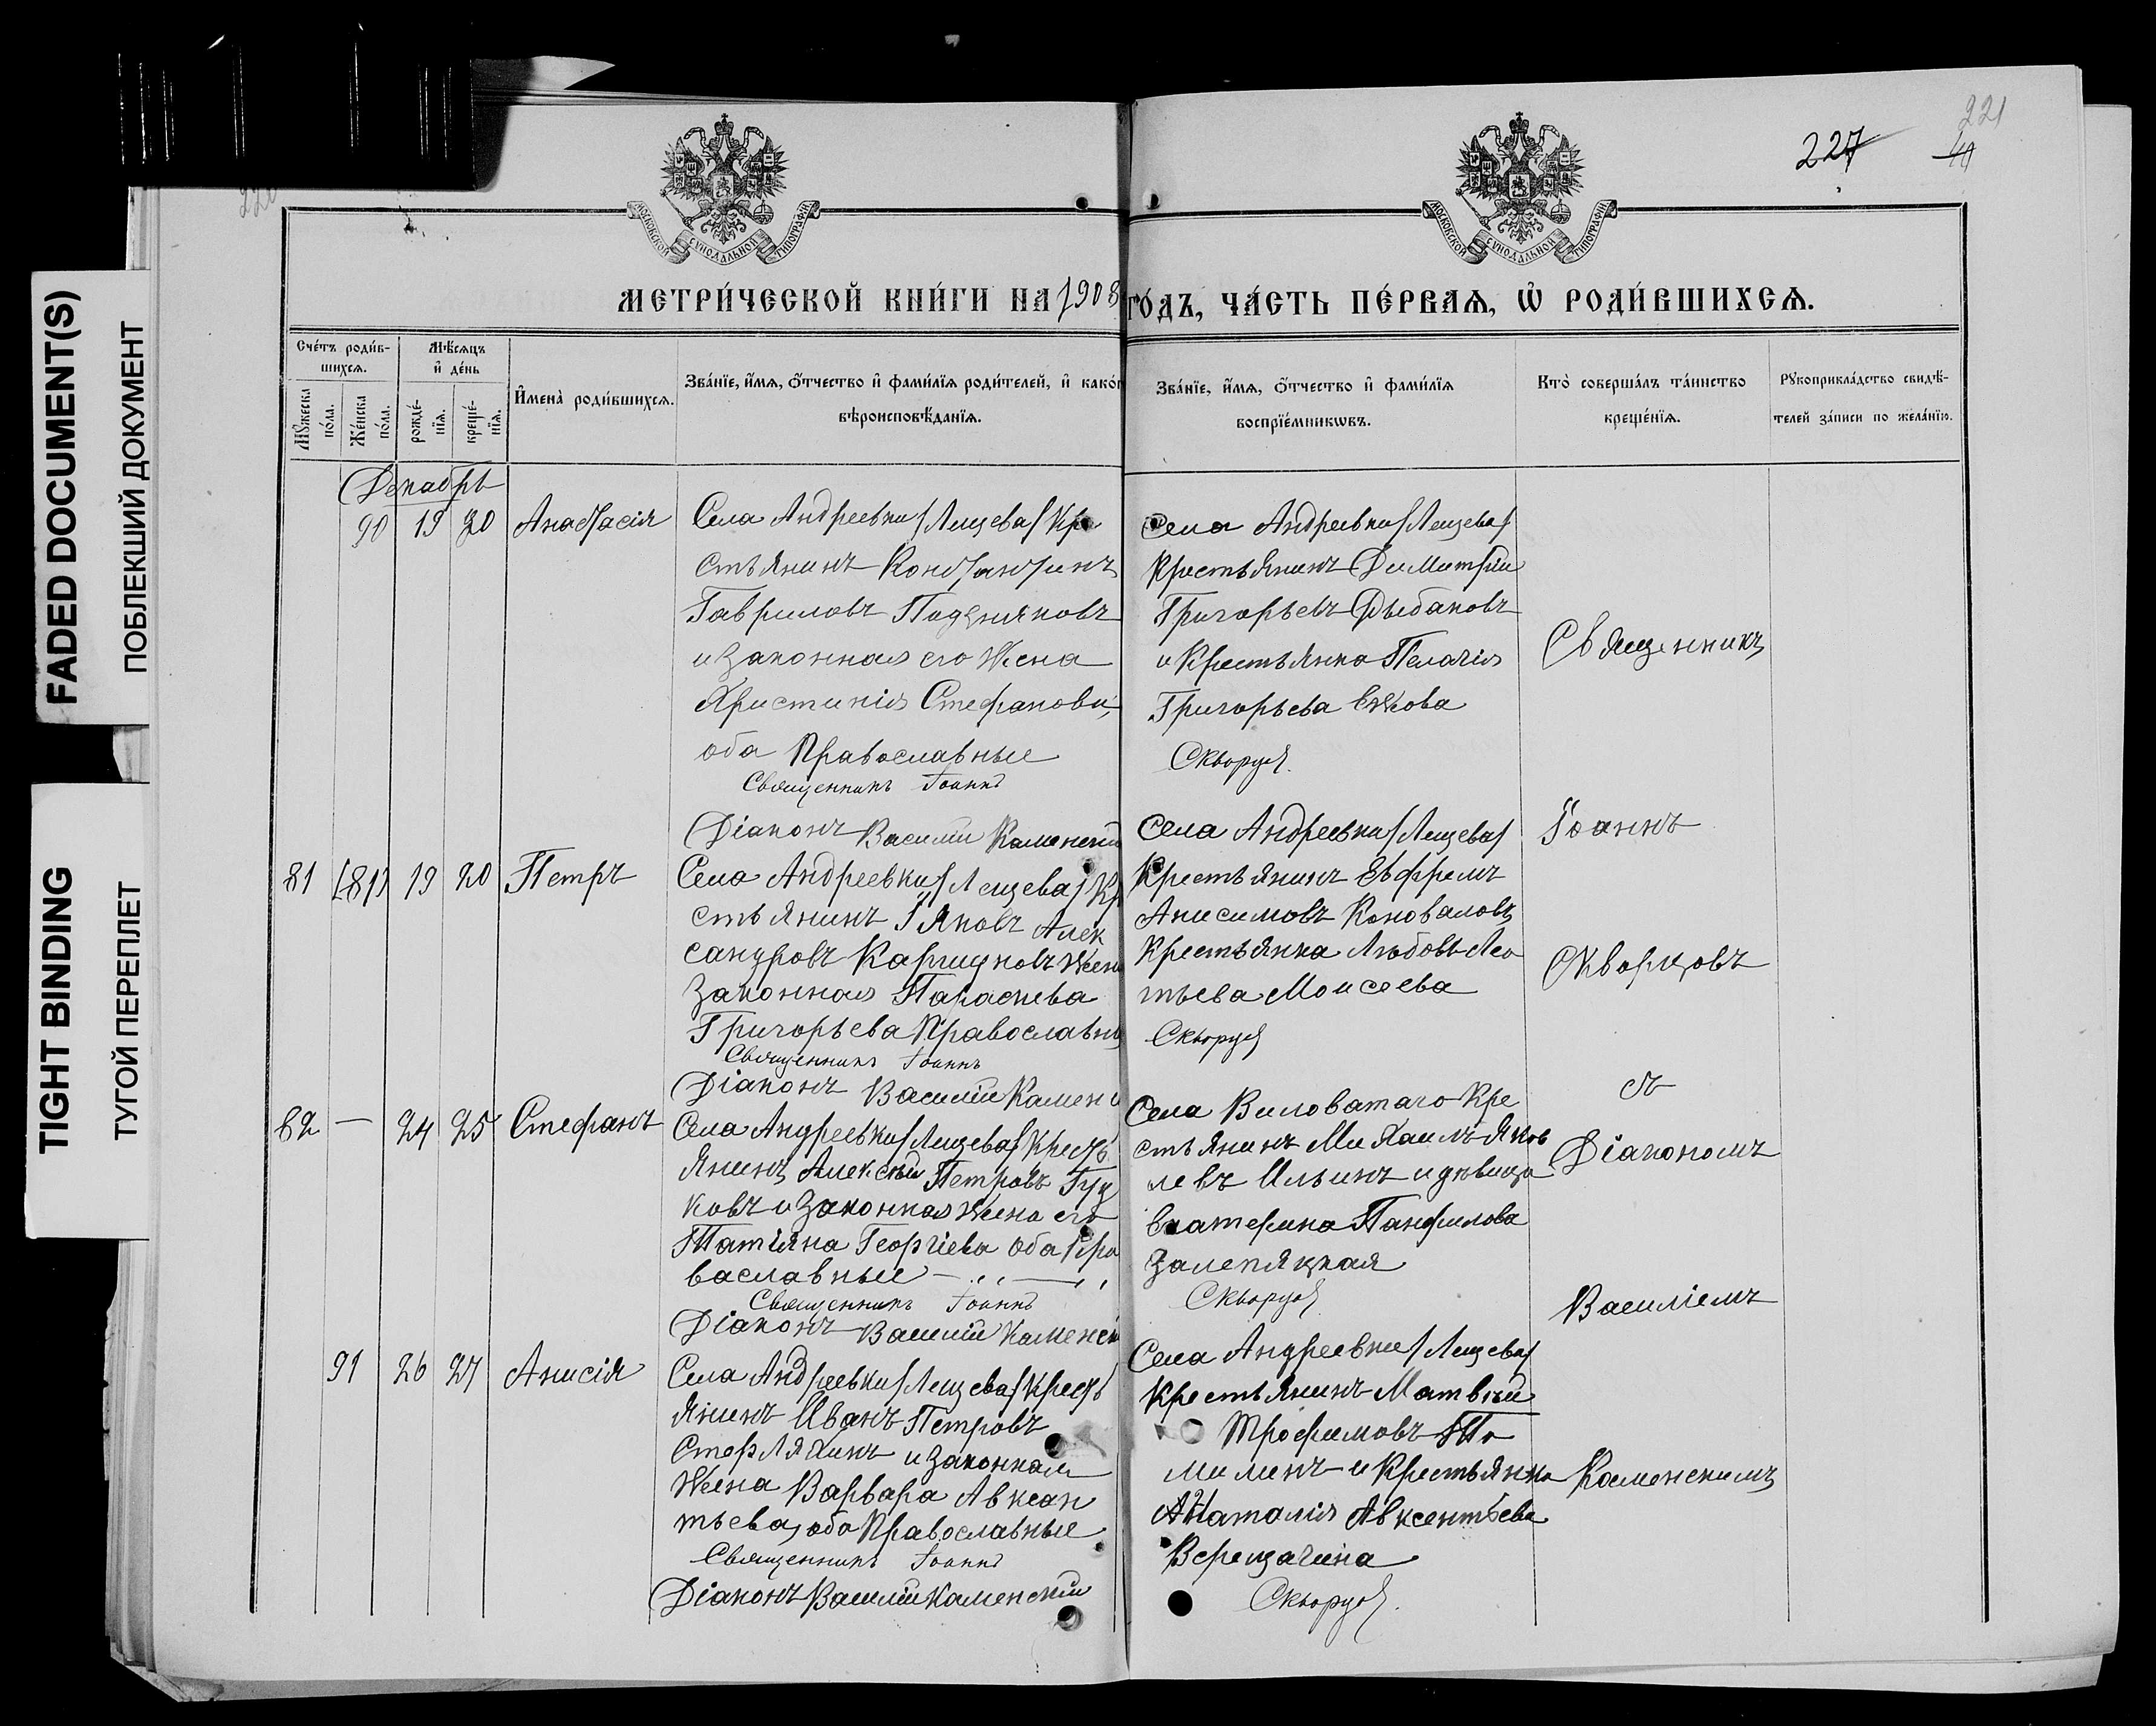 FADED DOCUMENT(S)
ПОБЛЕКШИЙ ДОКУМЕНТ
TIGHT BINDING
ТУГОЙ ПЕРЕПЛЕТ
221
227
МОСКОВСКОЙ СѴНОДАЛЬНОЙ ТИПОГРАФІИ
МОСКОВСКОЙ СѴНОДАЛЬНОЙ ТИПОГРАФІИ
МЕТРИ́ЧЕСКОЙ КНИ́ГИ НА 1908 ГО́ДЪ, ЧА́СТЬ ПЕ́РВАѦ, Ѡ҆ РОДИ́ВШИХСѦ.
Сче́тъ роди́в-
шихсѧ.
Мꙋ́жеска по́ла.
Же́нска по́ла.
Мѣ́сѧцъ
и҆ де́нь
рожде́-
нїѧ.
креще́-
нїѧ.
И҆мена̀ роди́вшихсѧ.
Зва́нїе, и҆́мѧ, ѻ҆́тчество и҆ фами́лїѧ роди́телей, и҆ како́г
вѣроисповѣ́данїѧ.
Зва́нїе, и҆́мѧ, ѻ҆́тчество и҆ фами́лїѧ
воспрїе́мникѡвъ.
Кто̀ соверша́лъ та́инство
креще́нїѧ.
Рꙋкоприкла́дство свидѣ́-
телей за́писи по жела́нїю.
Декабрь
90 19 20 Анастасія
Села Андреевки /Лещева/ Кре
стьянинъ Константинъ
Гавриловъ Поздняковъ
и законная его жена
Христинія Стефанова,
оба Православные
Священникъ Іоаннъ
Діаконъ Василій Каменскій
Села Андреевки /Лещева/
Крестьянинъ Димитрій
Григорьевъ Дыбаковъ
и Крестьянка Пелагія
Григорьева Ежова
Скворцов
81 (81) 19 20 Петръ
Села Андреевки /Лещева/ Кр
стьянинъ Іяковъ Алек
сандровъ Каргуновъ жена
законная Параскева
Григорьева Православны
Священникъ Іоаннъ
Діаконъ Василій Камен
Села Андреевки /Лещева/
Крестьянинъ Евфремъ
Анисимовъ Коноваловъ
Крестьянка Любовь Лео
тьева Моисеева
Скворцов
82 — 24 25 Стефанъ
Села Андреевки /Лещева/ Кресть
янинъ Алексѣй Петровъ Гуд
ковъ и законная жена его
Татіяна Георгіева оба Пра
вославные
Священникъ Іоаннъ
Діаконъ Василій Каменск
Села Виловатаго Кре
стьянинъ Михаилъ Яков
левъ Ильинъ и дѣвица
Екатерина Панфилова
Залепяцкая
Скворцов
91 26 27 Анисія
Села Андреевки /Лещева/ Кресть
янинъ Иванъ Петровъ
Стерляхинъ и законная
жена Варвара Авксен
тьева, оба Православные
Священникъ Іоаннъ
Діаконъ Василій Каменскій
Села Андреевки /Лещева/
Крестьянинъ Матвѣй
Трофимовъ То
милинъ и Крестьянка
Наталія Авксентьева
Верещагина
Скворцов
Священникъ
Іоаннъ
Скворцовъ
съ
Діакономъ
Василіемъ
Каменскимъ